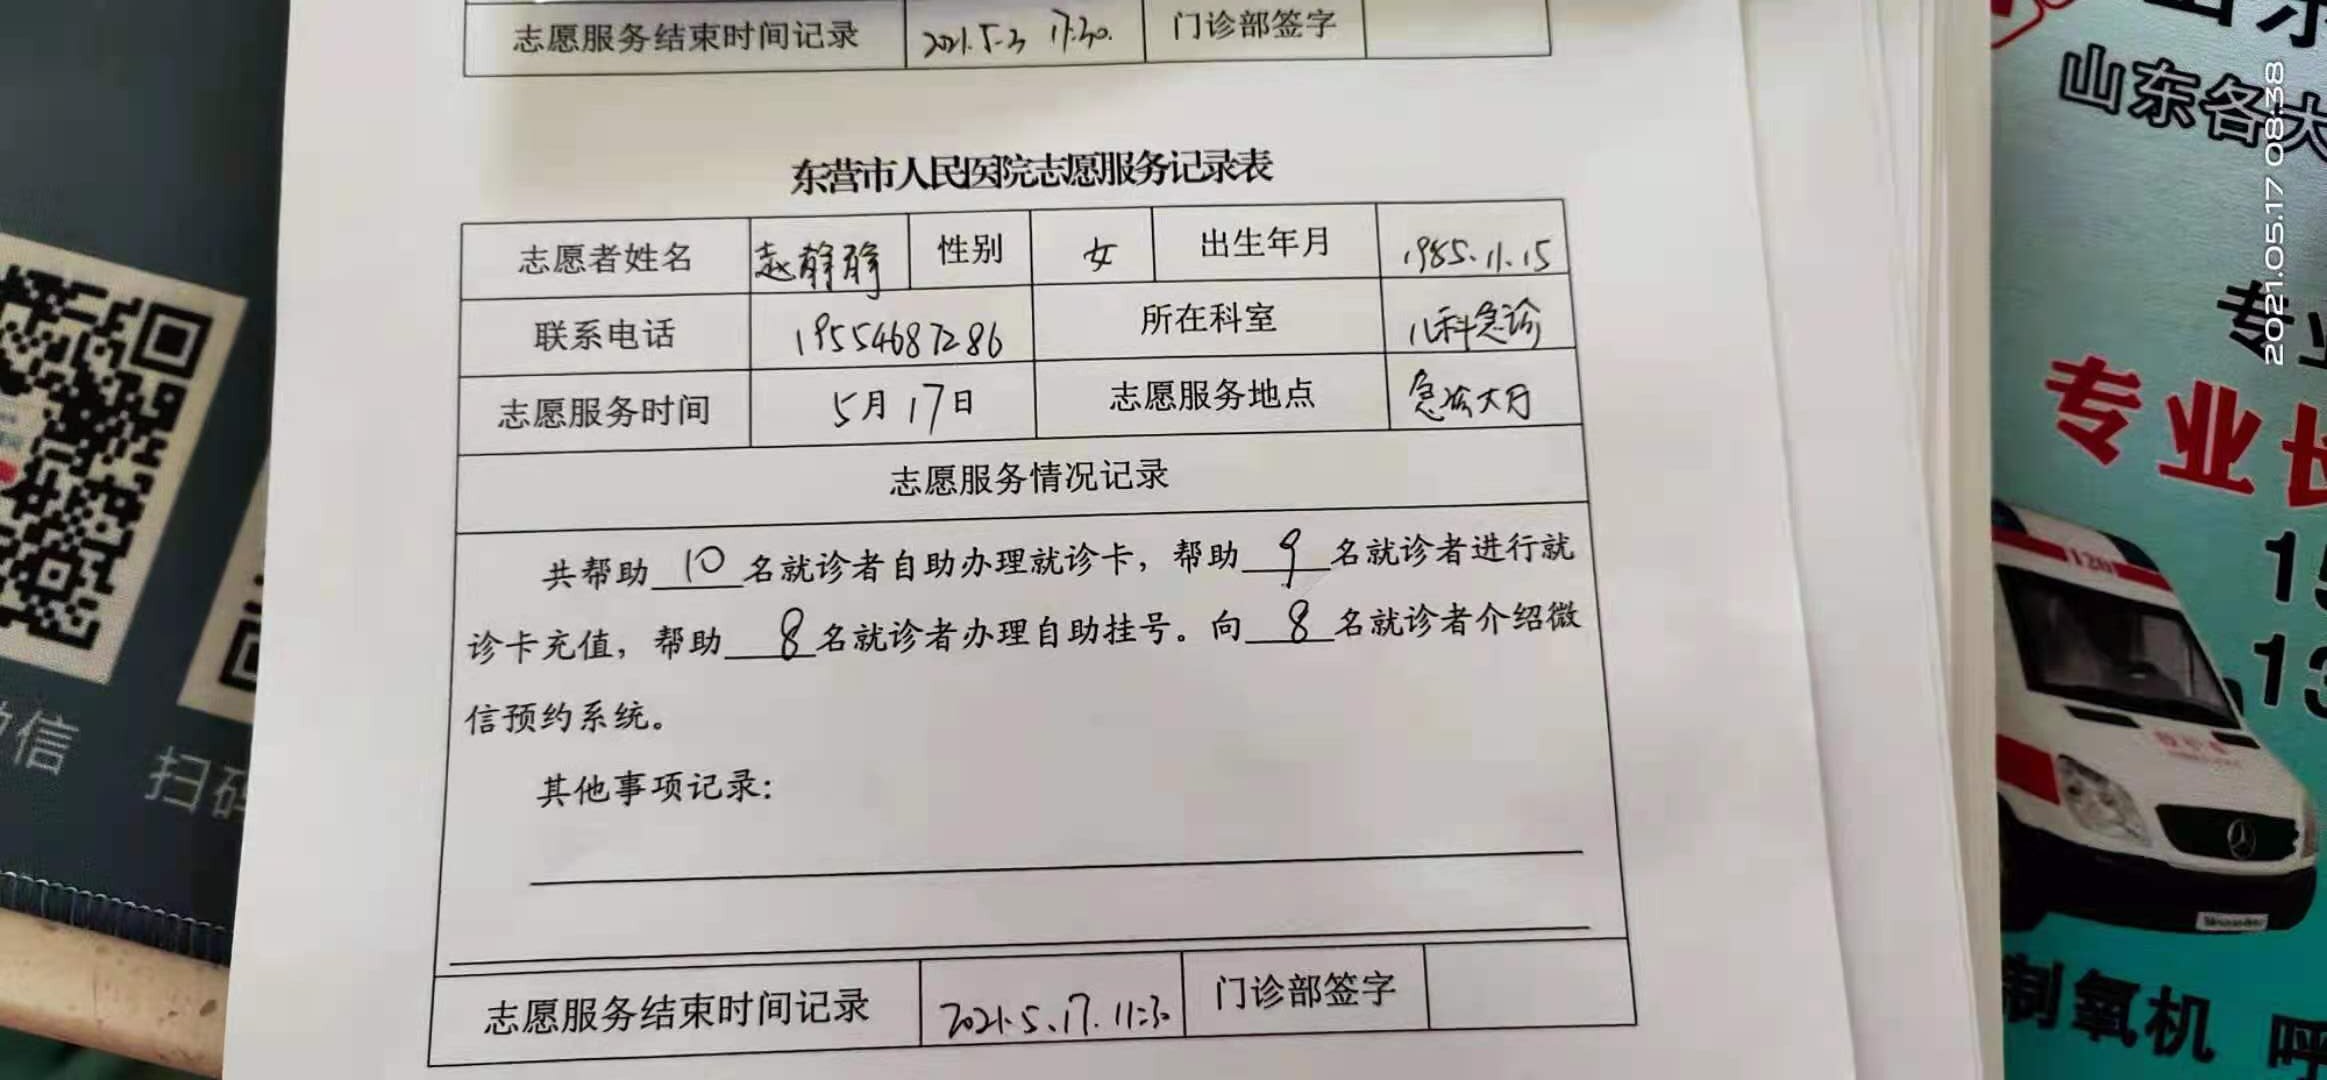 志愿服务结束时间记录 2021.5.3 17:30. 门诊部签字
东营市人民医院志愿服务记录表
志愿者姓名 赵静静 性别 女 出生年月 1985.11.15
联系电话 19554687286 所在科室 儿科急诊
志愿服务时间 5月17日 志愿服务地点 急诊大厅
志愿服务情况记录
共帮助 10 名就诊者自助办理就诊卡，帮助 9 名就诊者进行就
诊卡充值，帮助 8 名就诊者办理自助挂号。向 8 名就诊者介绍微
信预约系统。
其他事项记录：
志愿服务结束时间记录 2021.5.17.11:30 门诊部签字
微信
扫码
山东
山东各大
专业
专业长
15
13
120
制氧机 呼
2021.05.17 08:38